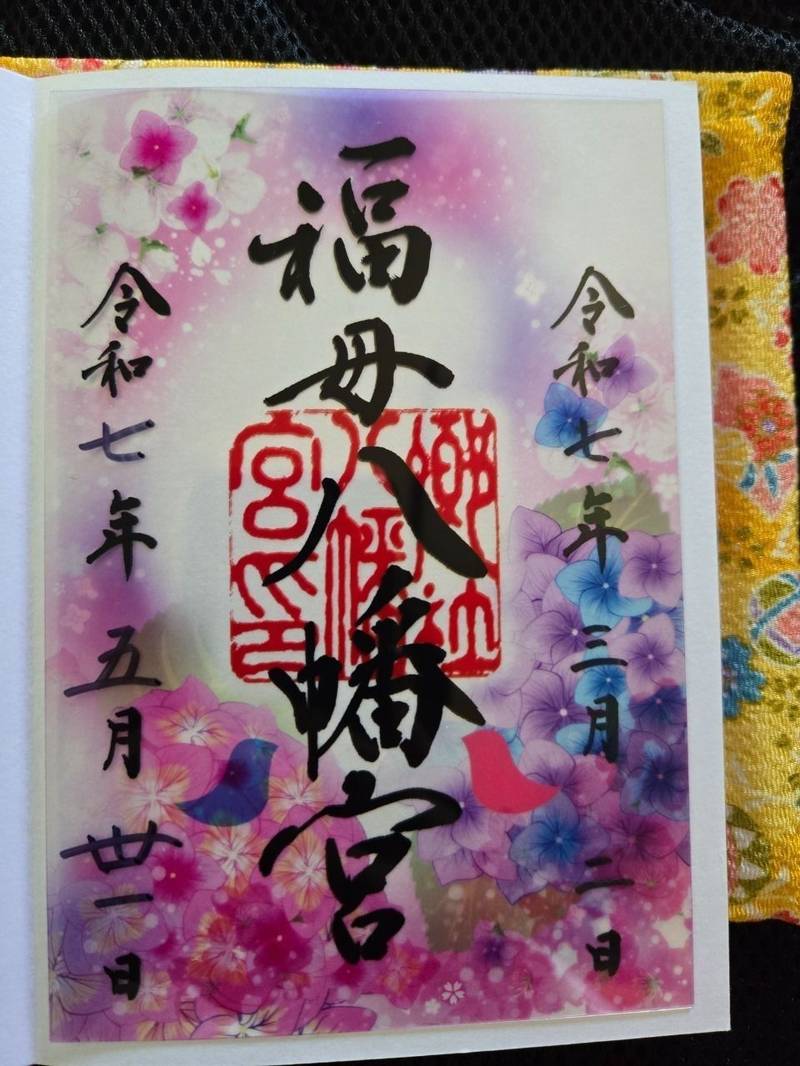 令和七年三月二日
福母八幡宮
郷社
八幡
宮印
令和七年五月丗一日